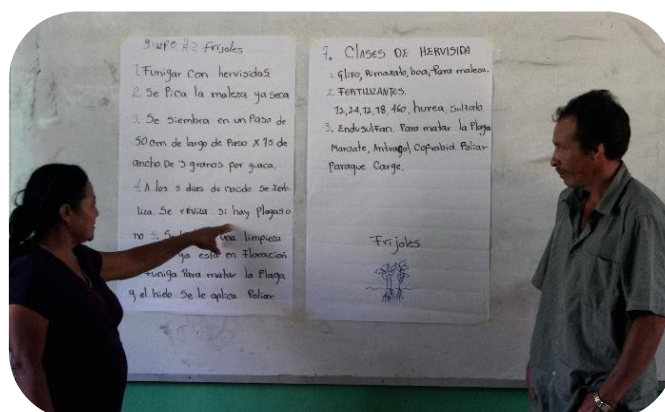 grupo #2 frijoles
1. Fumigar con hervisidas
2. Se Pica la malesa ya seca
3. Se siembra en un Paso de
50 cm de largo de Paso X 75 de
ancho De 3 granos por guaca.
4. A los 5 dias de nacido se
liza. Se reviza si hay Plagas o
no 5. una limpieza
ya esta en Floracion
Funiga Para matar la Plaga
y el hielo Se le aplica Foliar
7. CLASES DE HERVISIDA
1. Glifo, boa, Para malesa.
2. FERTILIZANTES.
12,24,12,18,460, hurea, Sulfato
3. Endusulfran. Para matar la Plaga
Manzate, Antragol, Foliar
Paraque Carge.
Frijoles